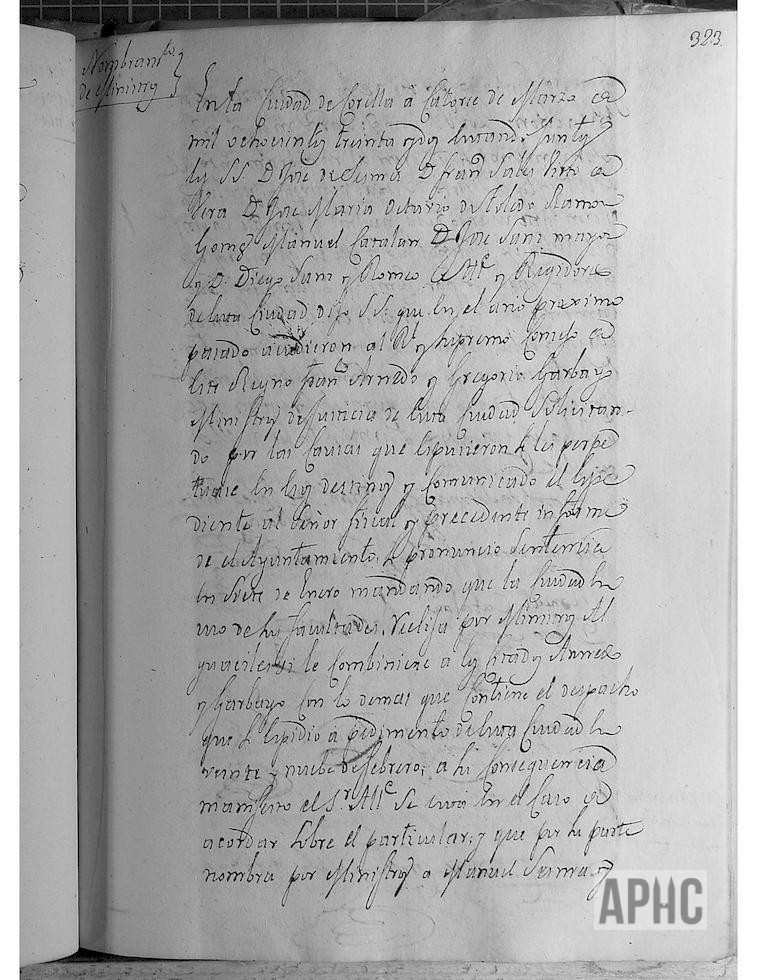 323
Nombram.to
de Ministros
En la Ciudad de Corella a Catorce de Marzo de
mil ochocientos treinta y dos estando Juntos
los SS. D. Jose de Sesma D. Fran.co Sales Virto de
Vera D. Jose Maria Octavio de Toledo Ramon
Gomez Manuel Catalan D. Jose Sanz mayor
y D. Diego Sanz y Romeo Alc.e y Regidores
de esta Ciudad dijo SS. que en el año proximo
pasado acudieron al R.l y Supremo Consejo de
este Reyno Fran.co Arnedo y Gregorio Garbayo
Ministros de Justicia de esta Ciudad Solicitan-
do por las Causas que espusieron se les perpe
tuase en sus destinos y Comunicado el Espe
diente al Señor fiscal y precedente informe
de el Ayuntamiento, se pronuncio Sentencia
en Siete de Enero mandando que la Ciudad en
uso de sus facultades, Reelija por Ministros Al
guaciles si le Combiniere a los Citados Arnedo
y Garbayo Con lo demas que Contiene el despacho
que se Espidio a pedimento de esta Ciudad en
veinte y nuebe de Febrero; a su Consequencia
manifesto el S.r Alc.e Se esta en el Caso de
acordar Sobre el particular; y que por su parte
nombra por Ministros a Manuel Sesma y
APHC